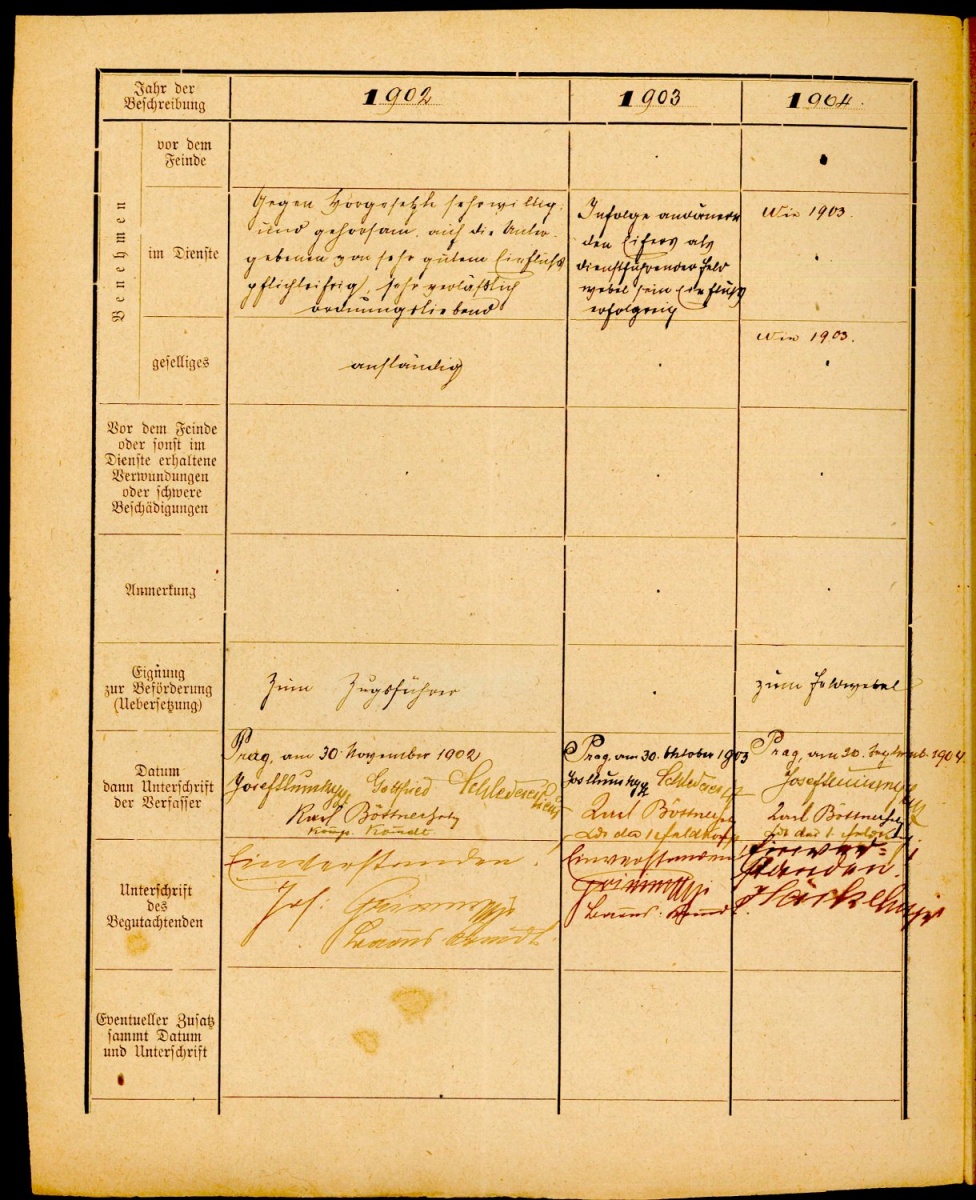 Jahr der
Beschreibung
1902
1903
1904.
Benehmen
vor dem
Feinde
im Dienste
Gegen Vorgesetzte sehr willig
und gehorsam, auf die Unter-
gebenen von sehr gutem Einfluß
pflichteifrig, sehr verläßlich
ordnungsliebend
Infolge
den Eifers als
dienstführender Feld
webel sein Einfluß
erfolgreich
Wie 1903.
geselliges
anständig
Wie 1903.
Vor dem Feinde
oder sonst im
Dienste erhaltene
Verwundungen
oder schwere
Beschädigungen
Anmerkung
Eignung
zur Beförderung
(Uebersetzung)
Zum Zugsführer
zum Feldwebel
Datum
dann Unterschrift
der Verfasser
Prag, am 30. November 1902
Josef Gottfried Schlederer
Karl
Komp. Kommdt
Prag, am 30. Oktober 1903
Schlederer
Karl
Prag, am 20. September 1904.
Josef
Karl
Unterschrift
des
Begutachtenden
Einverstanden.
Jos:
Baons Kommdt.
Einverstanden
Baons Kommdt.
Einver=
standen.
Eventueller Zusatz
sammt Datum
und Unterschrift